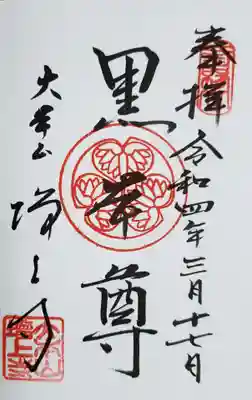 奉拝 令和四年三月十七日
黒本尊
大本山 増上寺